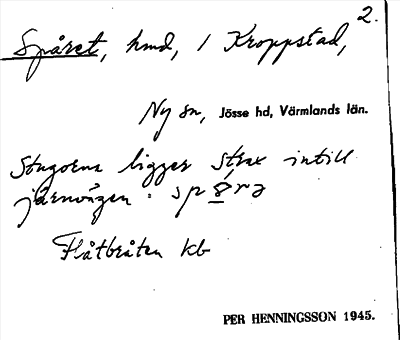 2.
Spåret, hmd, 1 Kroppstad,
Ny sn, Jösse hd, Värmlands län.
Stugorna ligger strax intill
järnvägen.
Flåtbråten kb
PER HENNINGSSON 1945.